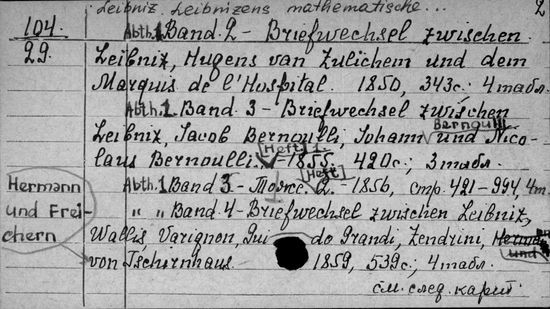 Leibniz. Leibnizens mathematische... 2
104. Abth.1 Band 2 - Briefwechsel zwischen
29. Leibniz, Hugens van Zulichem und dem
Marquis de l'Hospital. 1850, 343с.; 4 табл.
Abth.1 Band 3 - Briefwechsel zwischen
Bernoulli
Leibniz, Jacob Bernoulli, Johann und Nico-
Heft 1.
laus Bernoulli. - 1855. 420с.; 3 табл.
Heft
Abth.1 Band 3 - Тоже 2. - 1856, стр. 421-994, 4 т.
Hermann
und Frei-
chern
" " Band 4 - Briefwechsel zwischen Leibniz,
Wallis, Varignon, Guido Grandi, Zendrini,
und
von Tschirnhaus. 1859, 539с.; 4 табл.
см. след. карт.